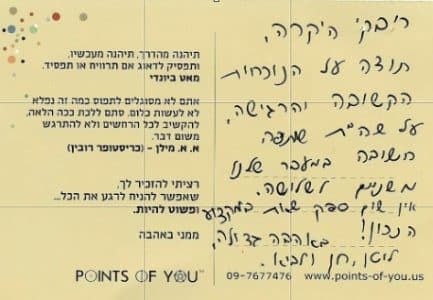 ריבקי היקרה,
תודה על הנוכחות
הקשובה והרגישה,
על שהית שותפה
חשובה במעבר שלנו
משניים לשלושה.
אין שום ספק שאת במקצוע
הנכון! באהבה גדולה,
לוטן, חן ולביא.
תיהנה מהדרך, תיהנה מעכשיו,
ותפסיק לדאוג אם תרוויח או תפסיד.
מאט ביונדי
אתם לא מסוגלים לתפוס כמה זה נפלא
לא לעשות כלום. סתם ללכת ככה הלאה,
להקשיב לכל הרחשים ולא להתרגש
משום דבר.
א. א. מילן - (כריסטופר רובין)
רציתי להזכיר לך,
שאפשר להניח לרגע את הכל...
ופשוט להיות.
ממני באהבה
POINTS OF YOU™
09-7677476 www.points-of-you.us